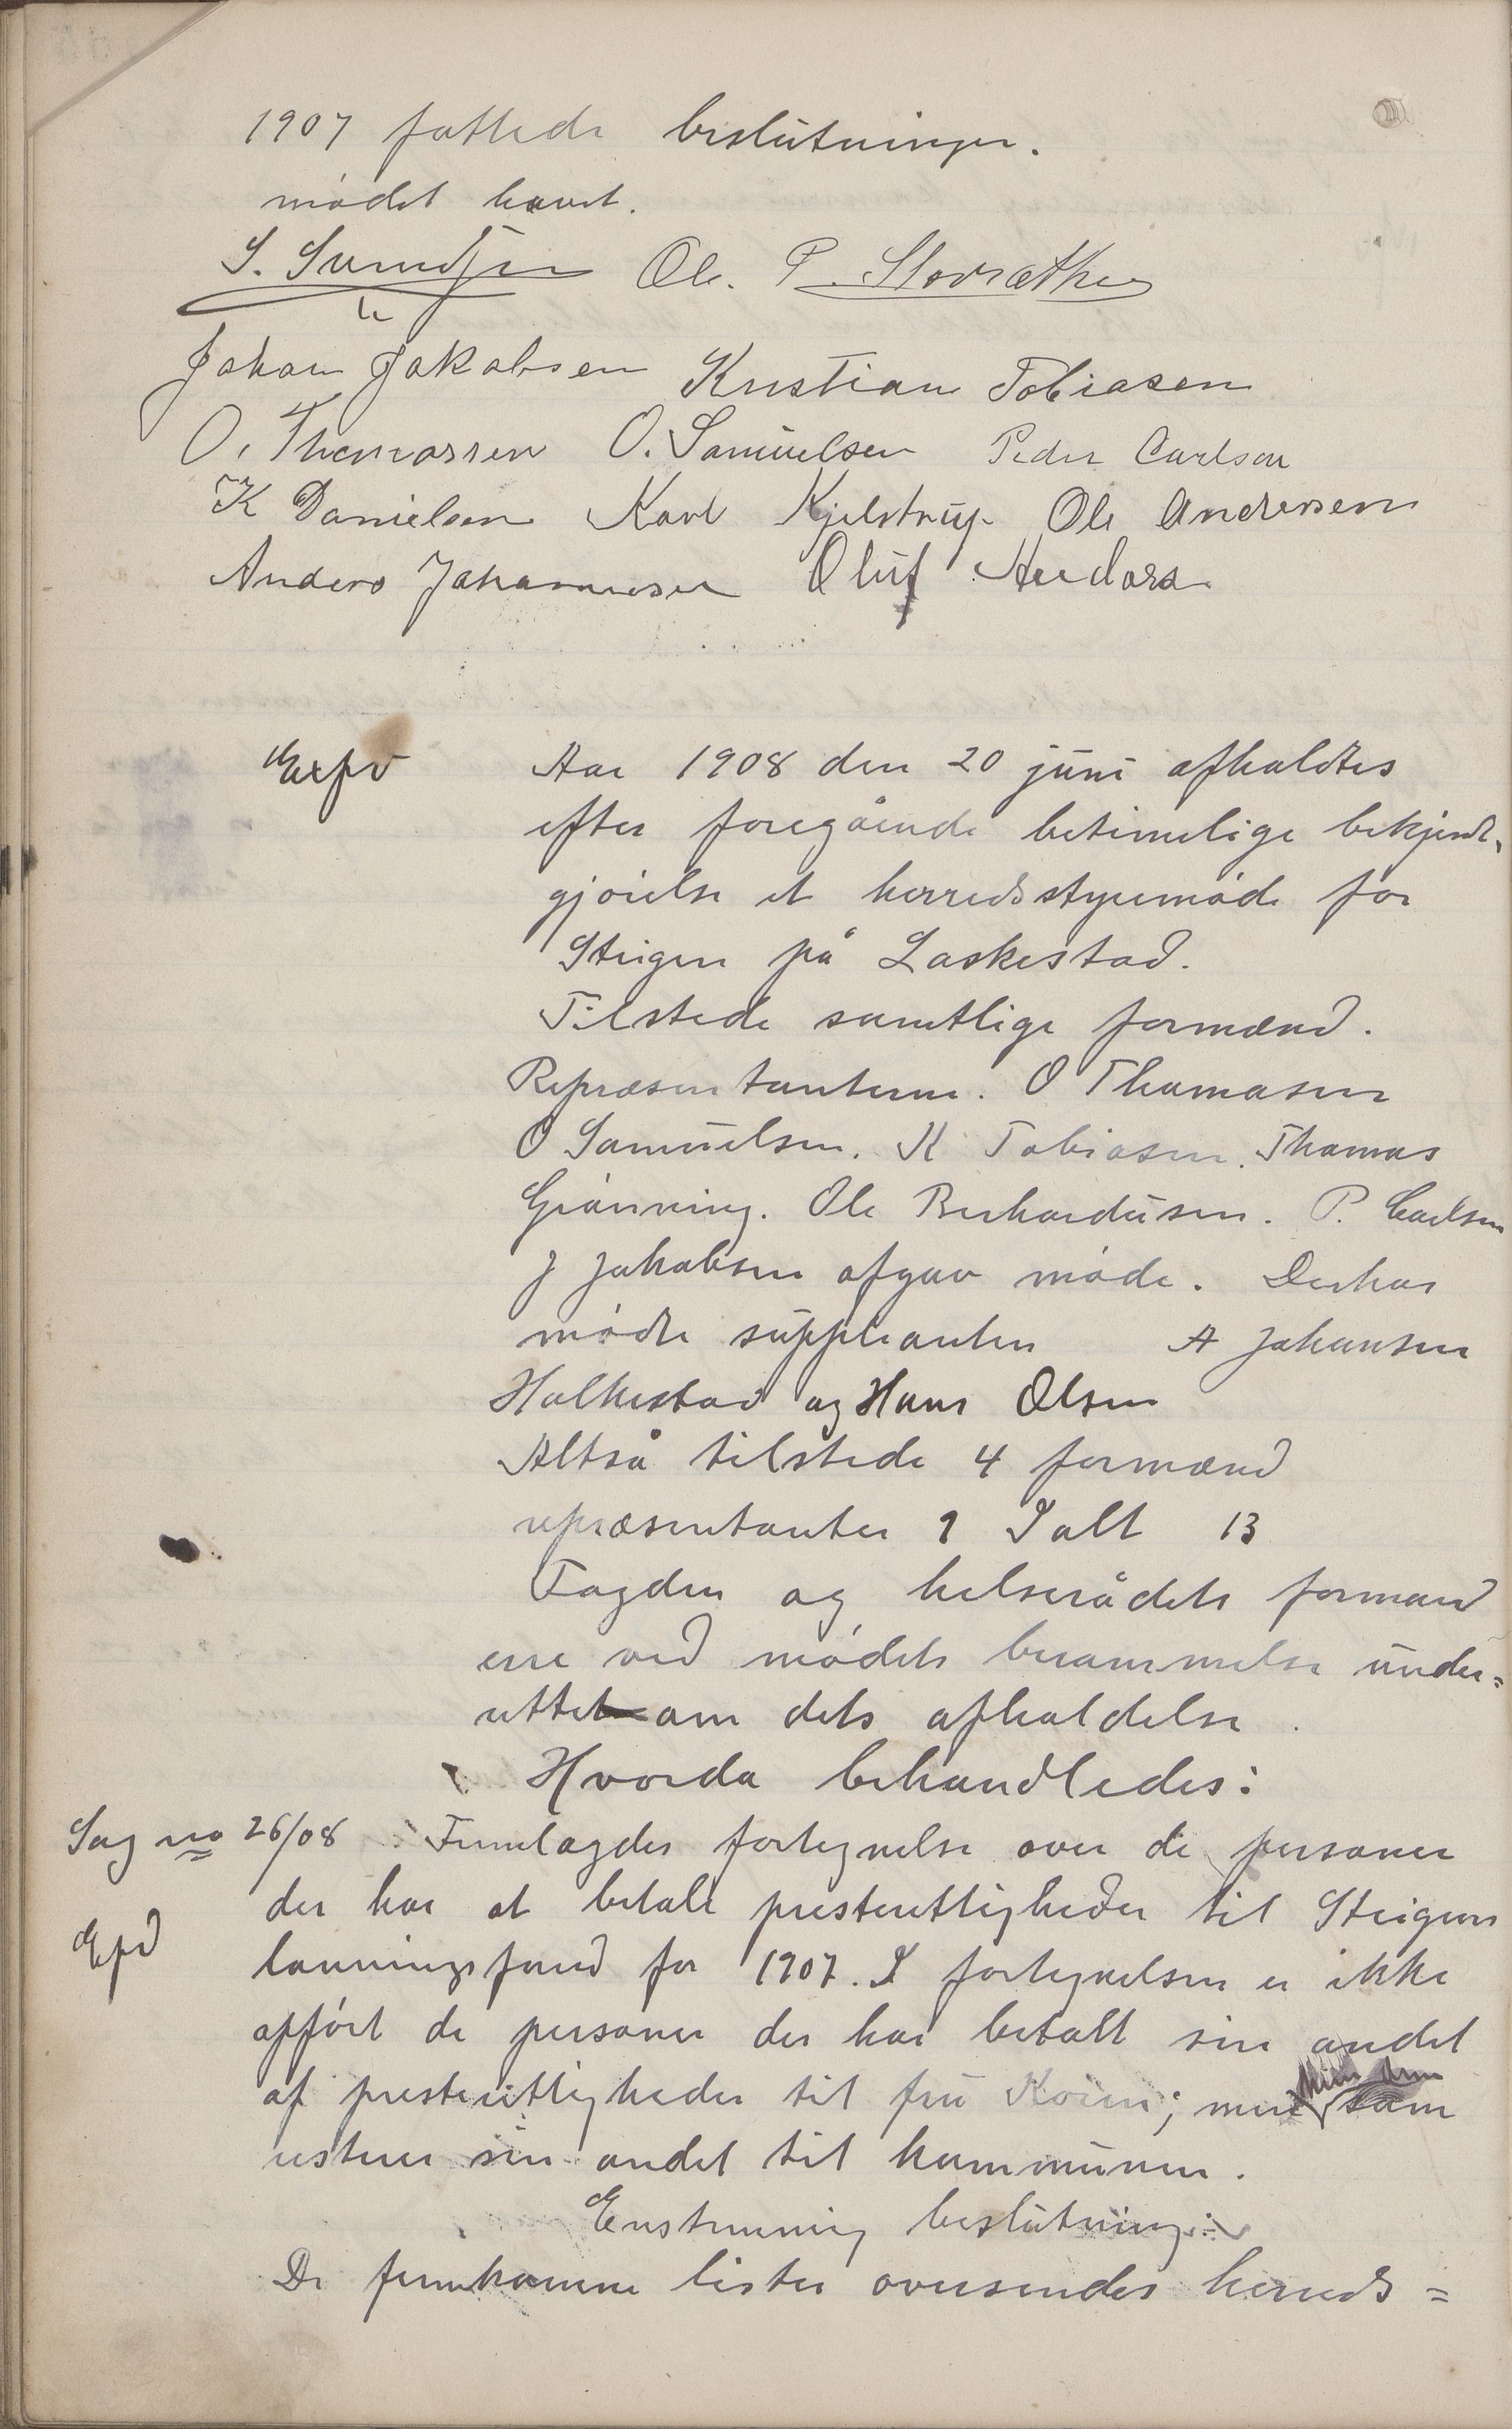 1907 fattede beslutninger.
mødet hævet.
S. Svendsen Ole. P. Storvæthe
Johan Jakobsen Kristian Tobiasen
O. Thomassen O. Samuelsen Peder Carlsen
K Danielsen Karl Kjelstrup Ole Andersen
Anders Johannesen Oluf
Expd Aar 1908 den 20 juni afholdtes
efter foregående betimelige bekjendt-
gjørelse et herredsstyremøde for
Steigen på Laskestad.
Tilstede samtlige formænd.
Repræsentanterne. O Thomasen
O Samuelsen. K Tobiasen. Thomas
Grønning. Ole Berhardusen. P. Carlsen
J Jakobsen afgav møde. Derhos
mødte suppleanten A Johansen
Holkestad og Hans Olsen
Altså tilstede 4 formænd
repræsentanter 9 Ialt 13
Fogden og helserådets formand
ere ved mødets berammelse under=
rettet om dets afholdelse.
Hvorda behandledes:
Sag no 26/08 Fremlagdes fortegnelse over de personer
der har at betale presterettigheder til Steigens
Epd lønningsfond for 1907. I fortegnelsen er ikke
opført de personer der har betalt sin andel
af presterettigheder til fru Koren; men som
resterer sin andel til kommunen.
Enstemmig beslutning:
De fremkomne lister oversendes herreds=